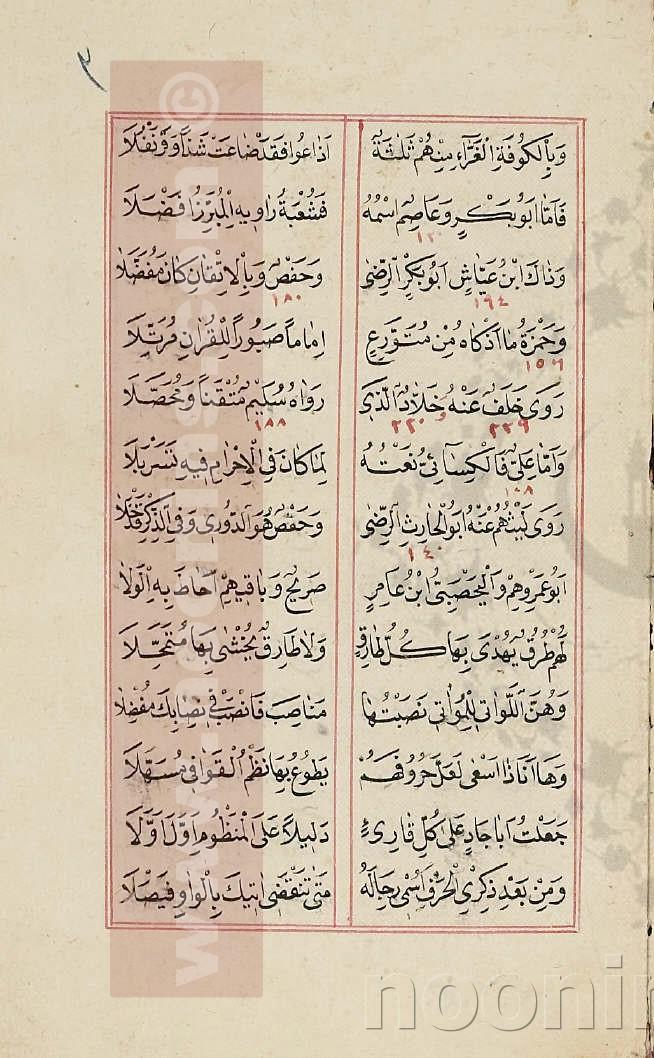 ٣
وَبِالْكُوفَةِ الْغَرَّاءِ مِنْهُمْ ثَلٰثَةٌ اَذَاعُوا فَقَدْ ضَاعَتْ شَذًا وَقَرَنْفُلَا
فَاَمَّا اَبُو بَكْرٍ وَعَاصِمٌ اسْمُهُ فَشُعْبَةُ رَاوِيهِ الْمُبَرِّزُ اَفْضَلَا
١٢٠
وَذَاكَ ابْنُ عَيَّاشٍ اَبُو بَكْرٍ الرِّضٰى وَحَفْصٌ وَبِالْاِتْقَانِ كَانَ مُفَضَّلَا
١٩٤ ١٨٠
وَحَمْزَةُ مَا اَذْكَاهُ مِنْ مُتَوَرِّعٍ اِمَاماً صَبُوراً لِلْقُرَانِ مُرَتِّلَا
١٥٦
رَوَى خَلَفٌ عَنْهُ وَخَلَّادٌ الَّذِي رَوَاهُ سُلَيْمٌ مُتْقَناً وَمُحَصَّلَا
٢٢٩ ٢٢٠ ١٨٨
وَاَمَّا عَلِيٌّ فَالْكِسَائِيُّ نَعْتُهُ لِمَا كَانَ فِي الْاِحْرَامِ فِيهِ تَسَرْبَلَا
١٨٩
رَوَى لَيْثُهُمْ عَنْهُ اَبُو الْحَارِثِ الرِّضٰى وَحَفْصٌ هُوَ الدُّورِي وَفِي الذِّكْرِ قَدْ خَلَا
٢٤٠
اَبُو عَمْرِوهِمْ وَالْيَحْصَبِيُّ ابْنُ عَامِرٍ صَرِيحٌ وَبَاقِيهِمْ اَحَاطَ بِهِ الْوَلَا
لَهُمْ طُرُقٌ يُهْدَى بِهَا كُلُّ طَارِقٍ وَلَا طَارِقٌ يُخْشٰى بِهَا مُتَمَحِّلَا
وَهُنَّ اللَّوَاتِي لِلْمُوَاتِي نَصَبْتُهَا مَنَاصِبَ فَانْصَبْ فِي نِصَابِكَ مُفْضِلَا
وَهَا اَنَا ذَا اَسْعٰى لَعَلَّ حُرُوفَهُمْ يَطُوعُ بِهَا نَظْمُ الْقَوَافِي مُسَهَّلَا
جَعَلْتُ اَبَا جَادٍ عَلَى كُلِّ قَارِئٍ دَلِيلاً عَلَى الْمَنْظُومِ اَوَّلَ اَوَّلَا
وَمِنْ بَعْدِ ذِكْرِي الْحَرْفَ اُسْمِي رِجَالَهُ مَتٰى تَنْقَضِي اٰتِيكَ بِالْوَاوِ فَيْصَلَا